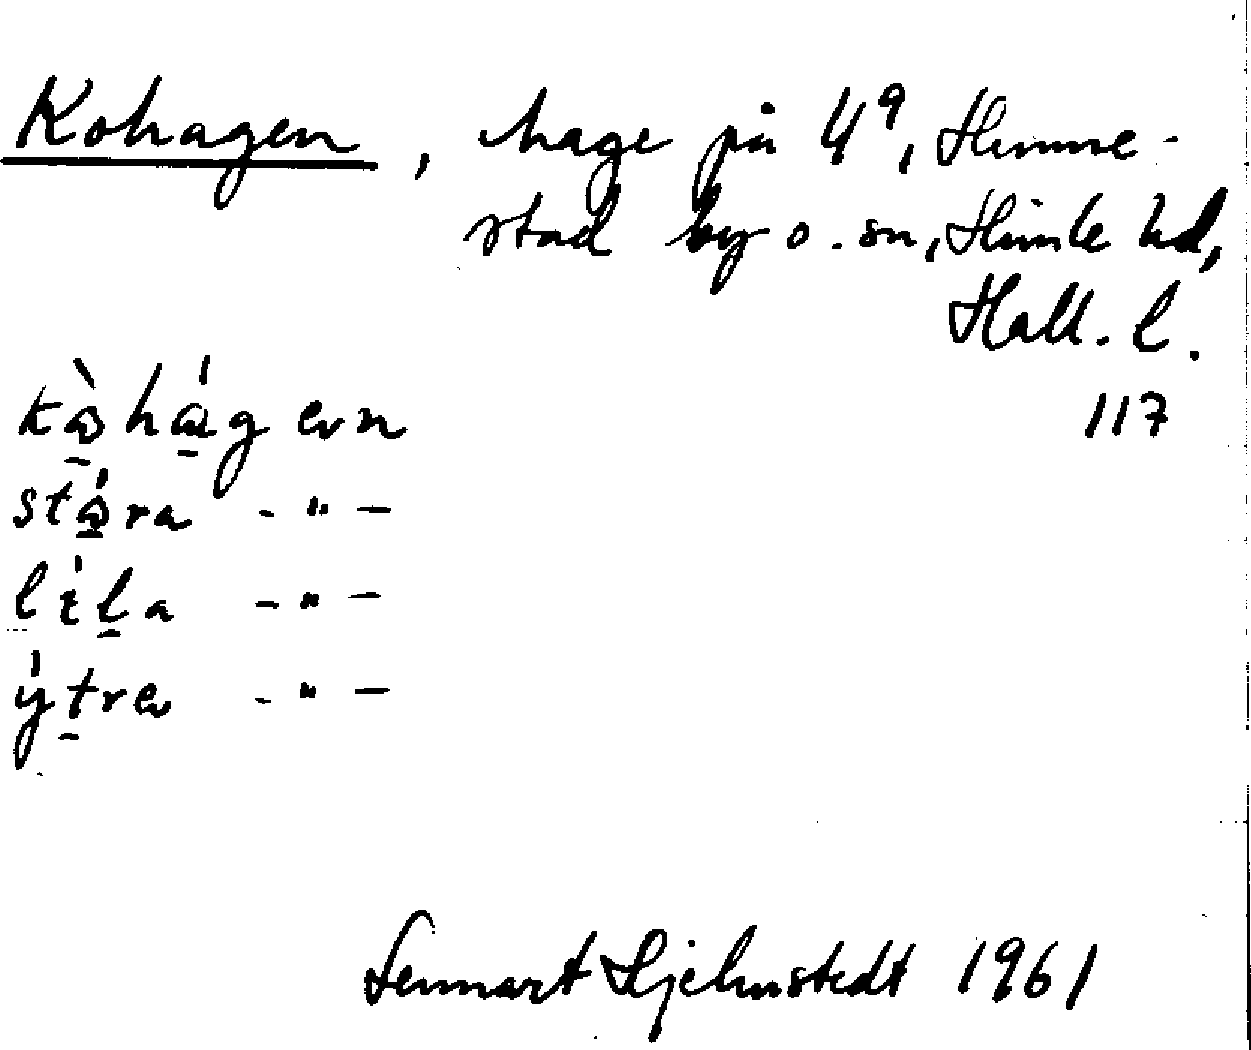 Kohagen, hage på 4⁹, Himme-
stad by o. sn, Himle hd,
Hall. l.
117
kòhág en
stóra - " -
líla - " -
ýtre - " -
Lennart Hjelmstedt 1961